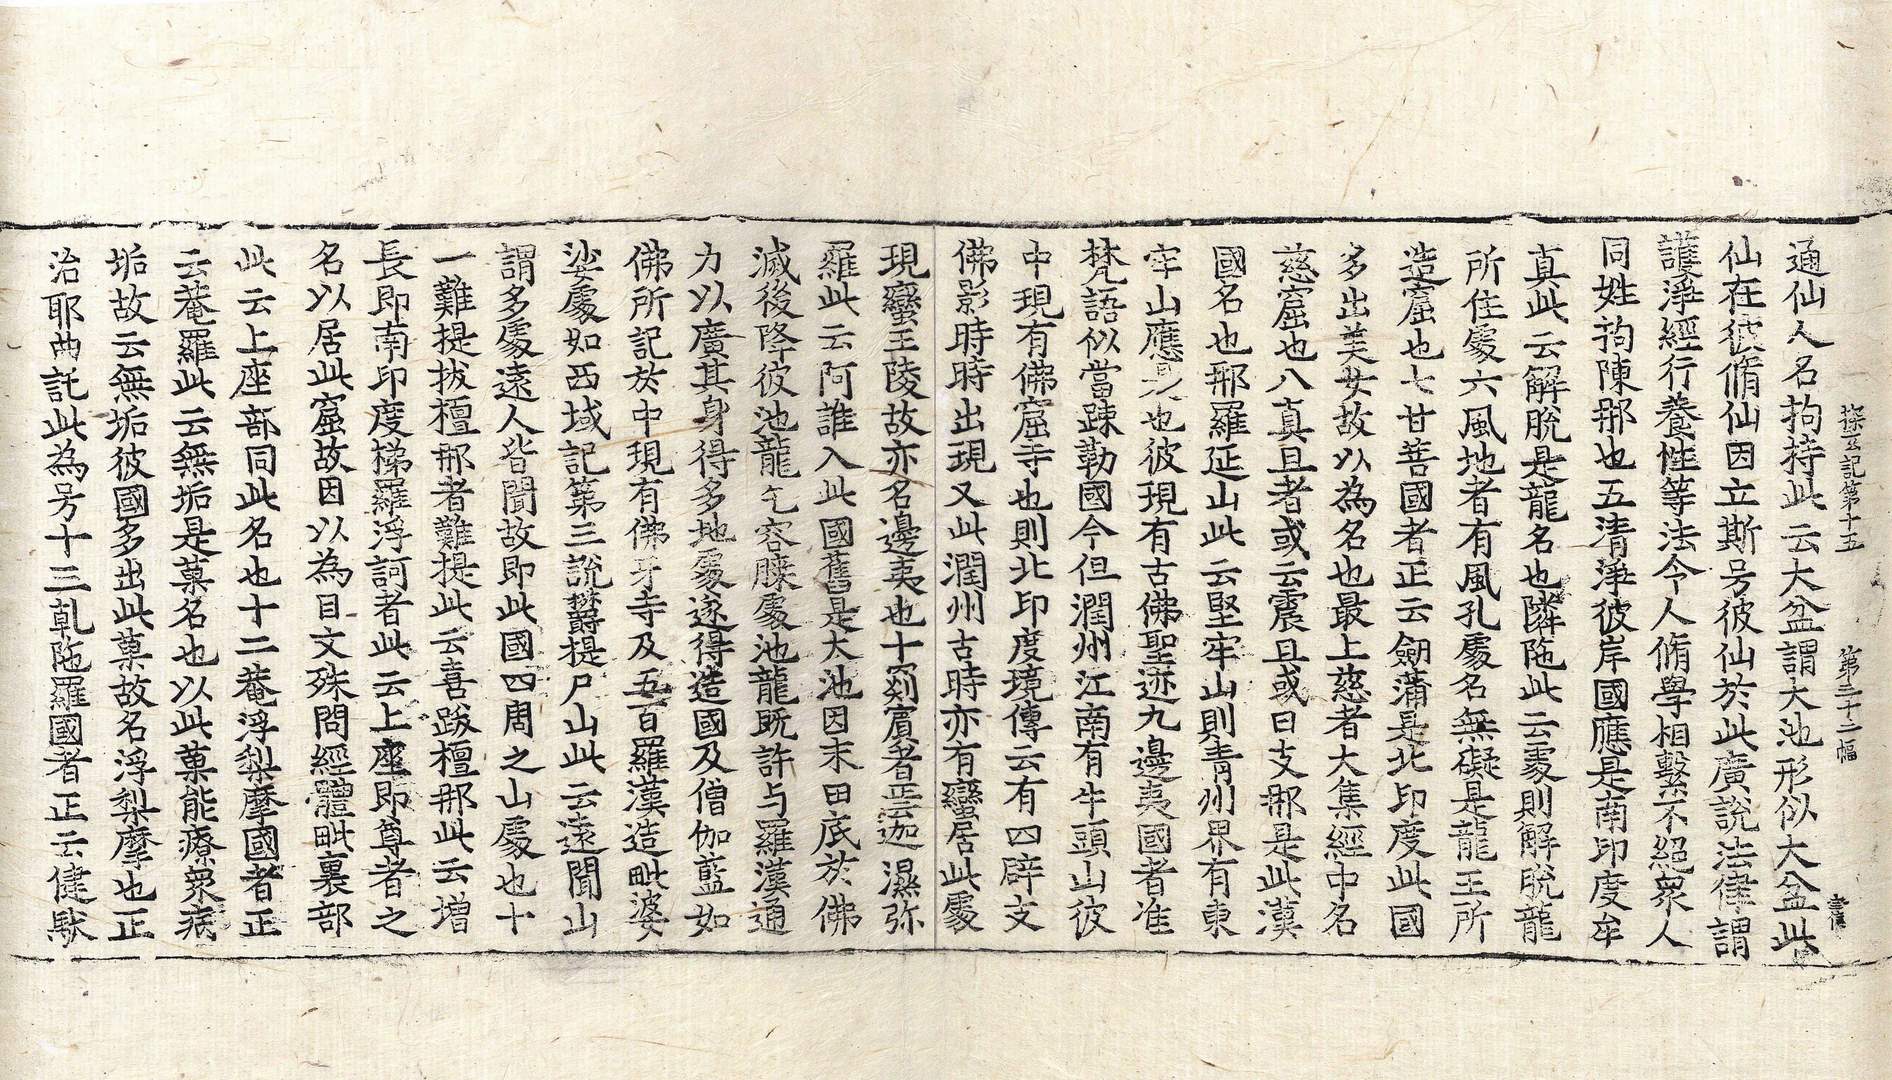 探玄記第十五 第三十二幅
通仙人名拘持此云大盆謂大池形似大盆此
仙在彼脩仙因立斯号彼仙於此廣說法律謂
護淨經行養性等法令人脩學相繫不絕衆人
同姓拘陳那也五清淨彼岸國應是南印度牟
真此云解脫是龍名也隣陁此云處則解脫龍
所住處六風地者有風孔處名無礙是龍王所
造窟也七甘菩國者正云劒蒲是北印度此國
多出美女故以為名也最上慈者大集經中名
慈窟也八真旦者或云震旦或曰支那是此漢
國名也那羅延山此云堅牢山則青州界有東
牢山應是也彼現有古佛聖迹九邊夷國者准
梵語似當踈勒國今但潤州江南有牛頭山彼
中現有佛窟寺也則北印度境傳云有四辟支
佛影時時出現又此潤州古時亦有蠻居此處
現蠻王陵故亦名邊夷也十罽賔者正云迦濕弥
羅此云阿誰入此國舊是大池因末田底於佛
滅後降彼池龍乞容膝處池龍旣許与羅漢通
力以廣其身得多地處遂得造國及僧伽藍如
佛所記於中現有佛牙寺及五百羅漢造毗婆
娑處如西域記第三說欝提尸山此云遠聞山
謂多處遠人皆聞故即此國四周之山處也十
一難提拔檀那者難提此云喜跋檀那此云增
長即南印度梯羅浮訶者此云上座即尊者之
名以居此窟故因以為目文殊問經體毗裏部
此云上座部同此名也十二菴浮梨摩國者正
云菴羅此云無垢是菓名也以此菓能療衆病
垢故云無垢彼國多出此菓故名浮梨摩也正
治耶曲託此為号十三乹陁羅國者正云健駄